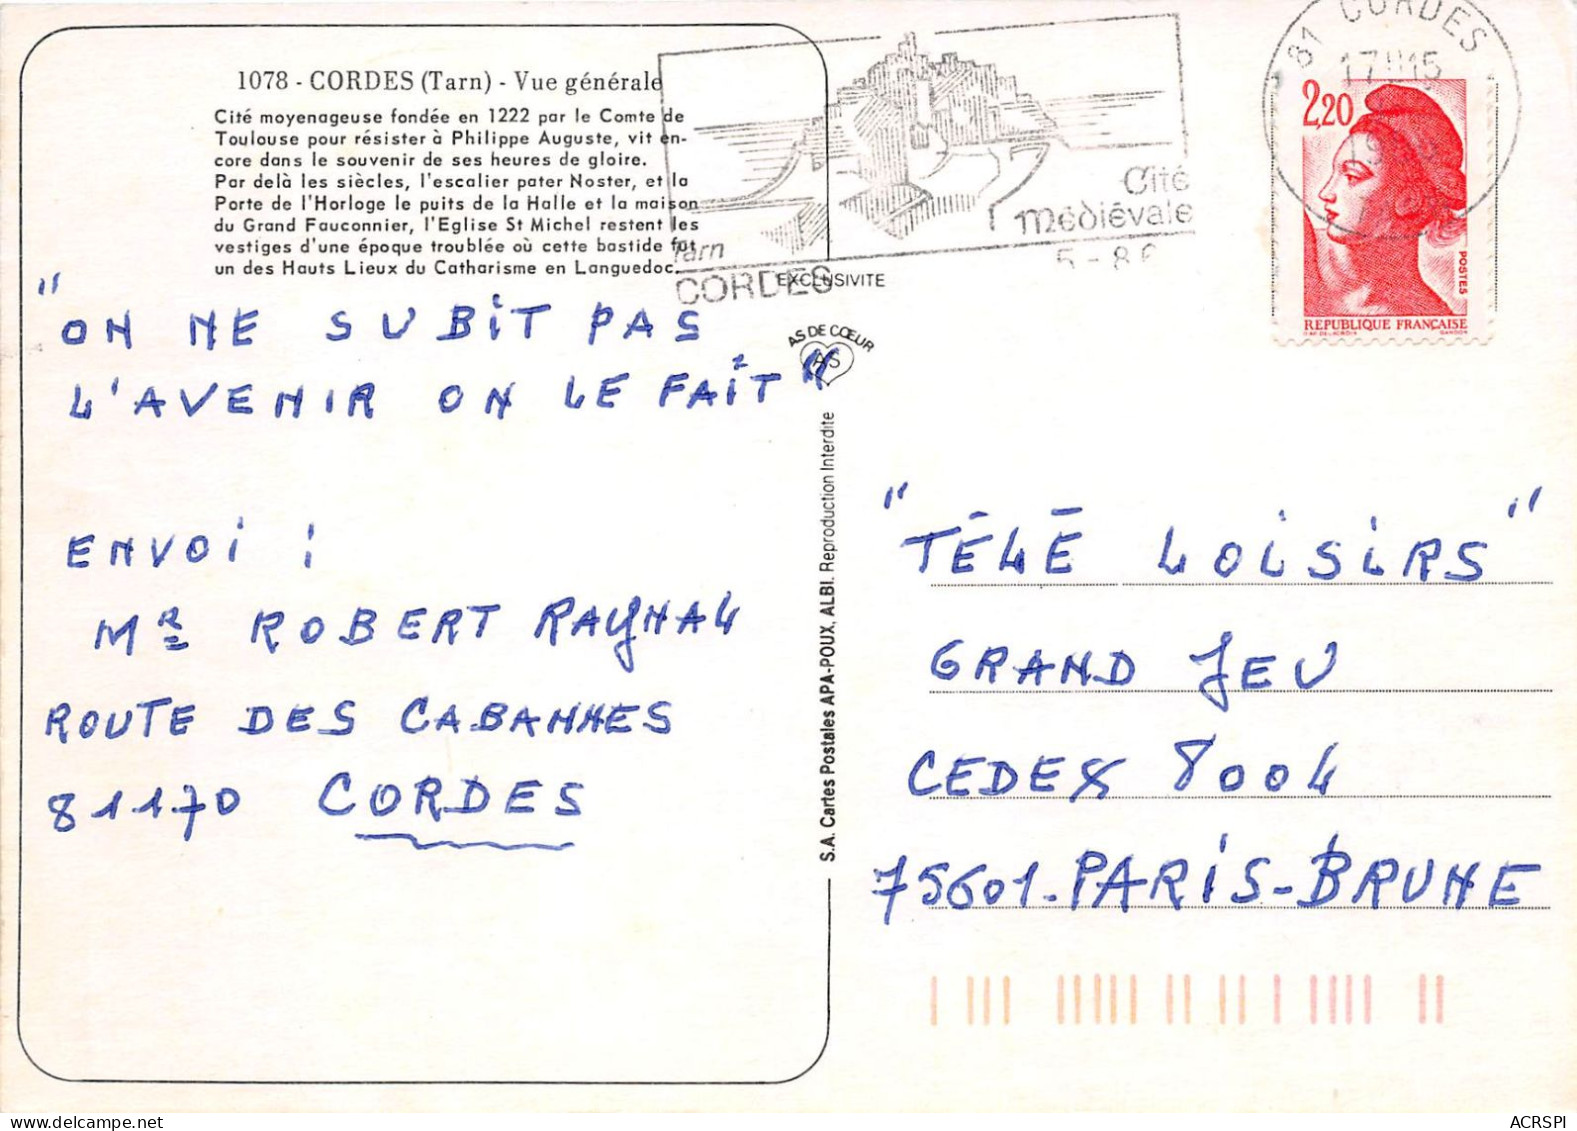 1078 - CORDES (Tarn) - Vue générale
Cité moyenageuse fondée en 1222 par le Comte de
Toulouse pour résister à Philippe Auguste, vit en-
core dans le souvenir de ses heures de gloire.
Par delà les siècles, l'escalier pater Noster, et la
Porte de l'Horloge le puits de la Halle et la maison
du Grand Fauconnier, l'Eglise St Michel restent les
vestiges d'une époque troublée où cette bastide fut
un des Hauts Lieux du Catharisme en Languedoc.
"ON NE SUBIT PAS
L'AVENIR ON LE FAIT"
ENVOI :
MR ROBERT RAYNAL
ROUTE DES CABANNES
81170 CORDES
Tarn
CORDES
Cité
médiévale
EXCLUSIVITE
AS DE CŒUR
AS
S.A. Cartes Postales APA-POUX, ALBI. Reproduction Interdite
81 CORDES
17H15
2,20
POSTES
REPUBLIQUE FRANÇAISE
GANDON
"TÉLÉ LOISIRS"
GRAND JEU
CEDEX 8004
75601-PARIS-BRUNE
ACRSPI